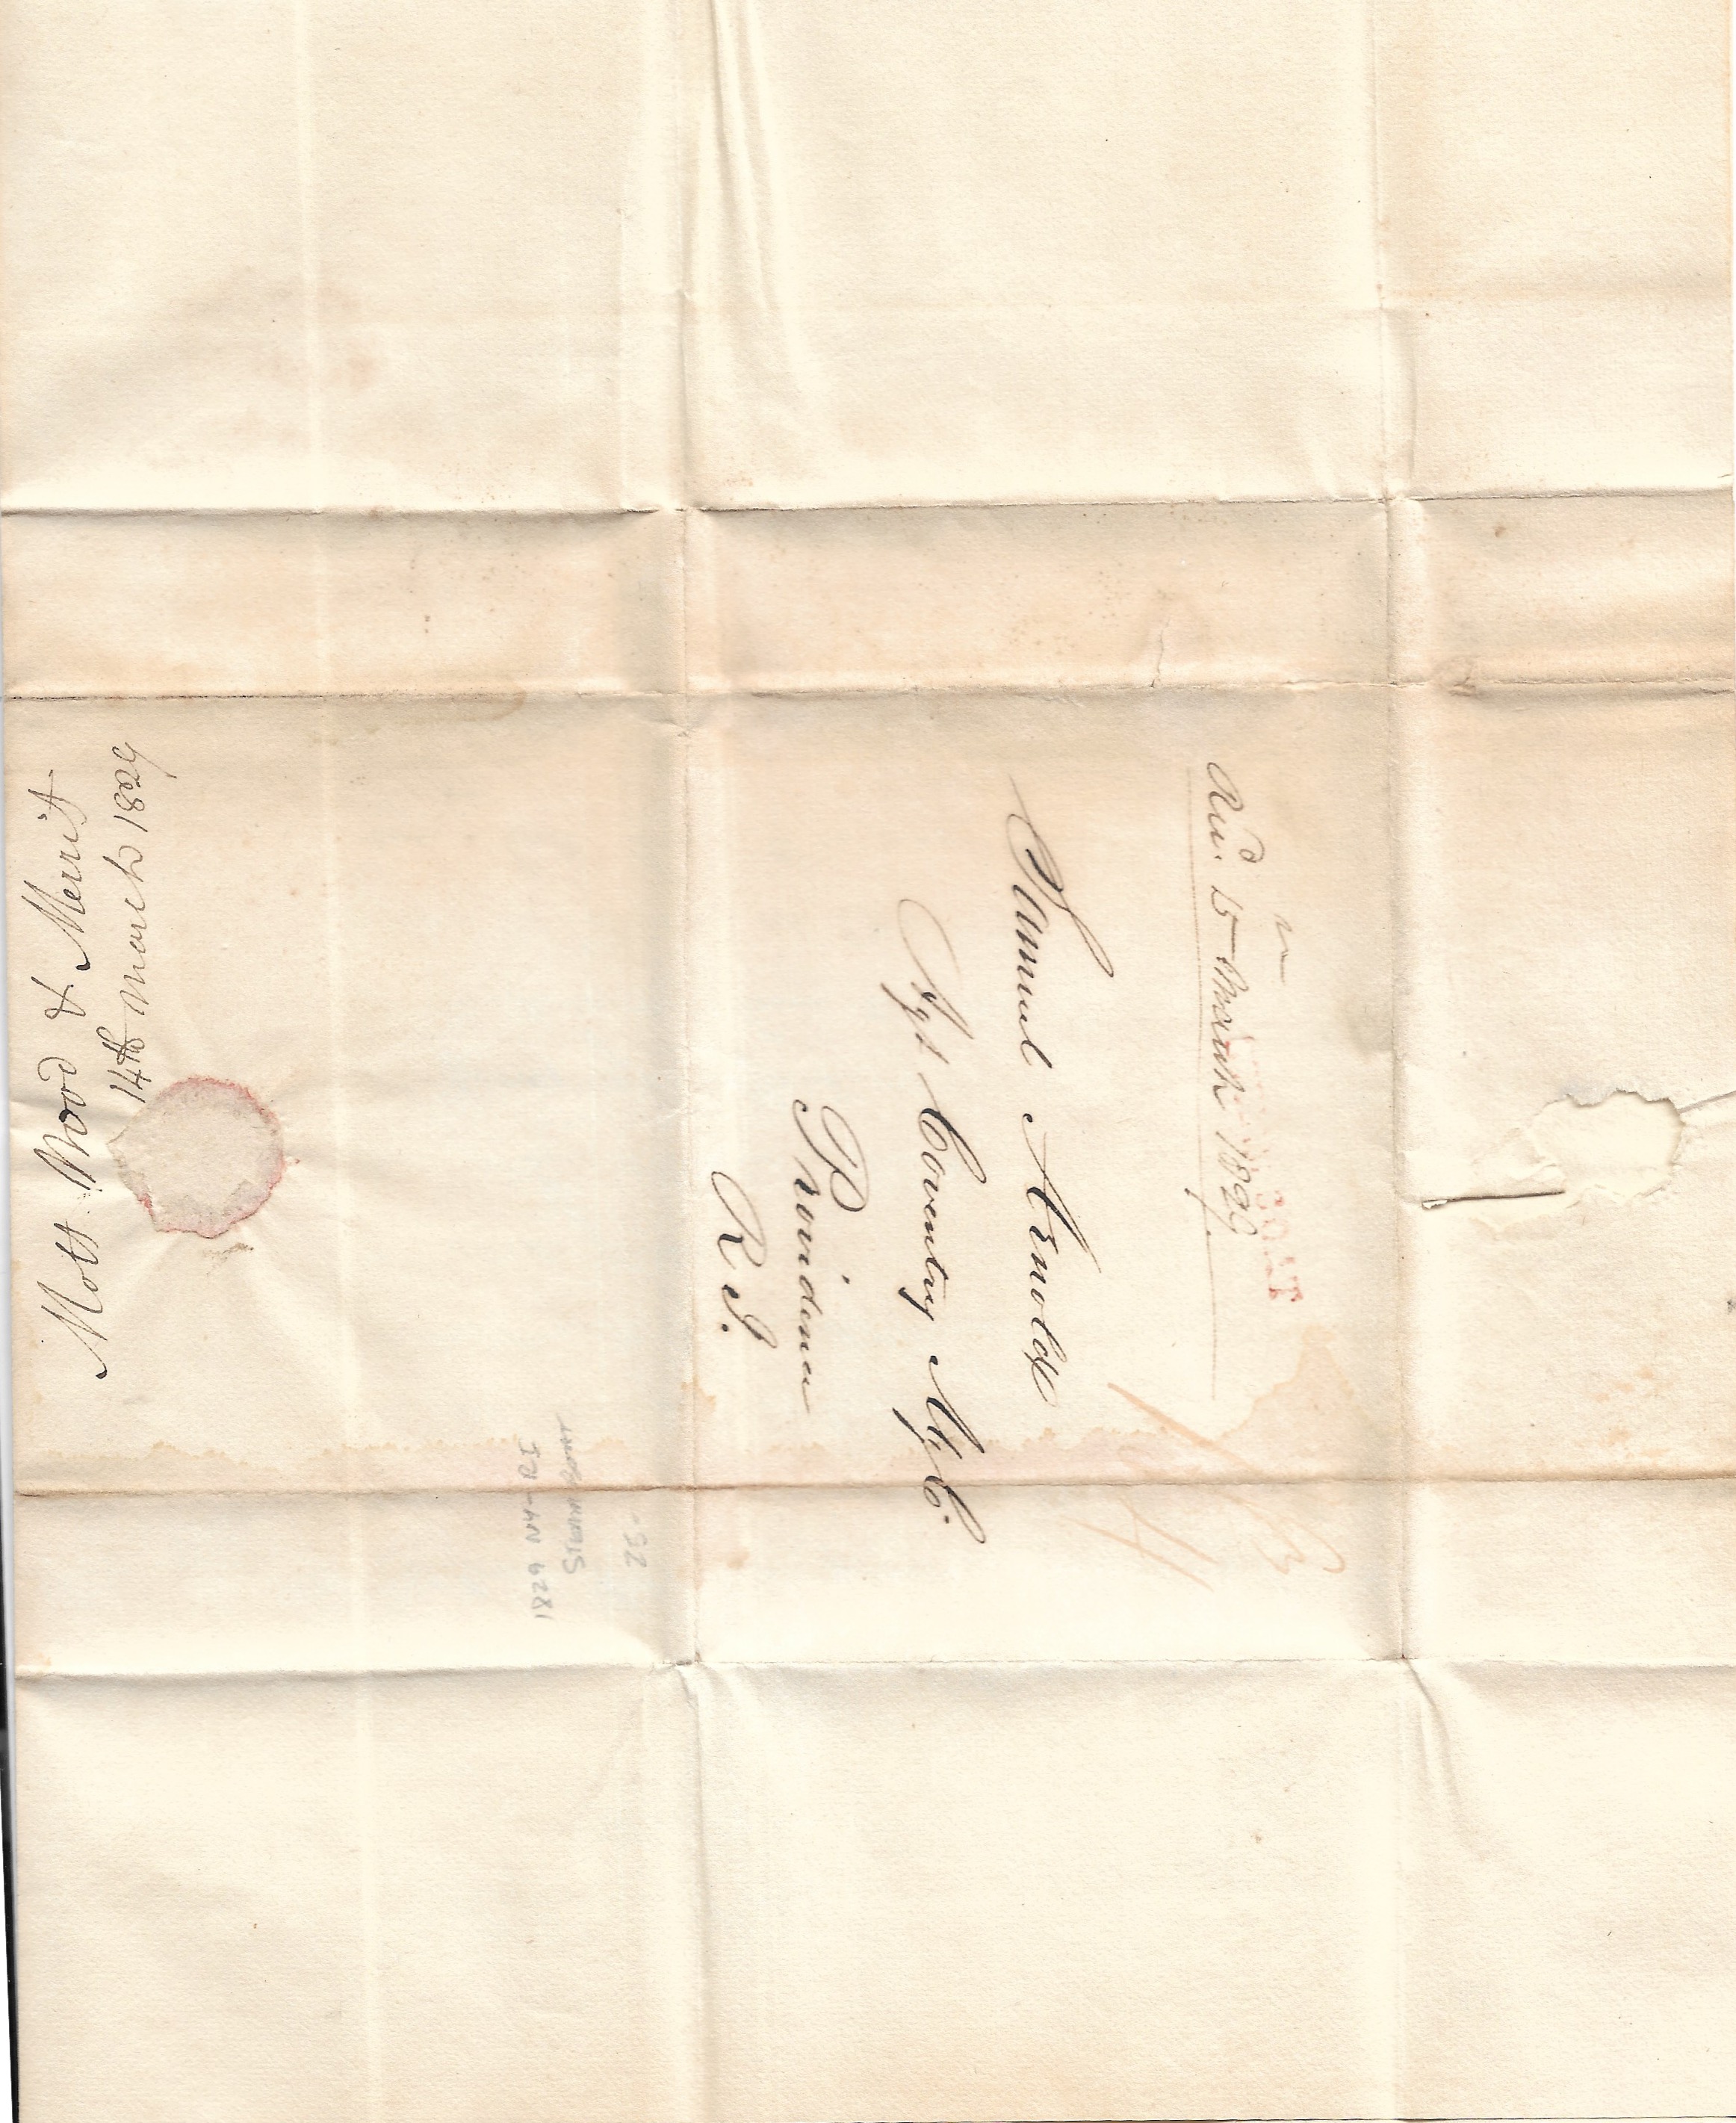 Recd 15 March 1829
Samuel Arnold
Agt Coventry Mf Co.
Providence
R I.
Mott Wood & Merritt
14th March 1829
25-
STEAMBOAT
1829 NY-RI